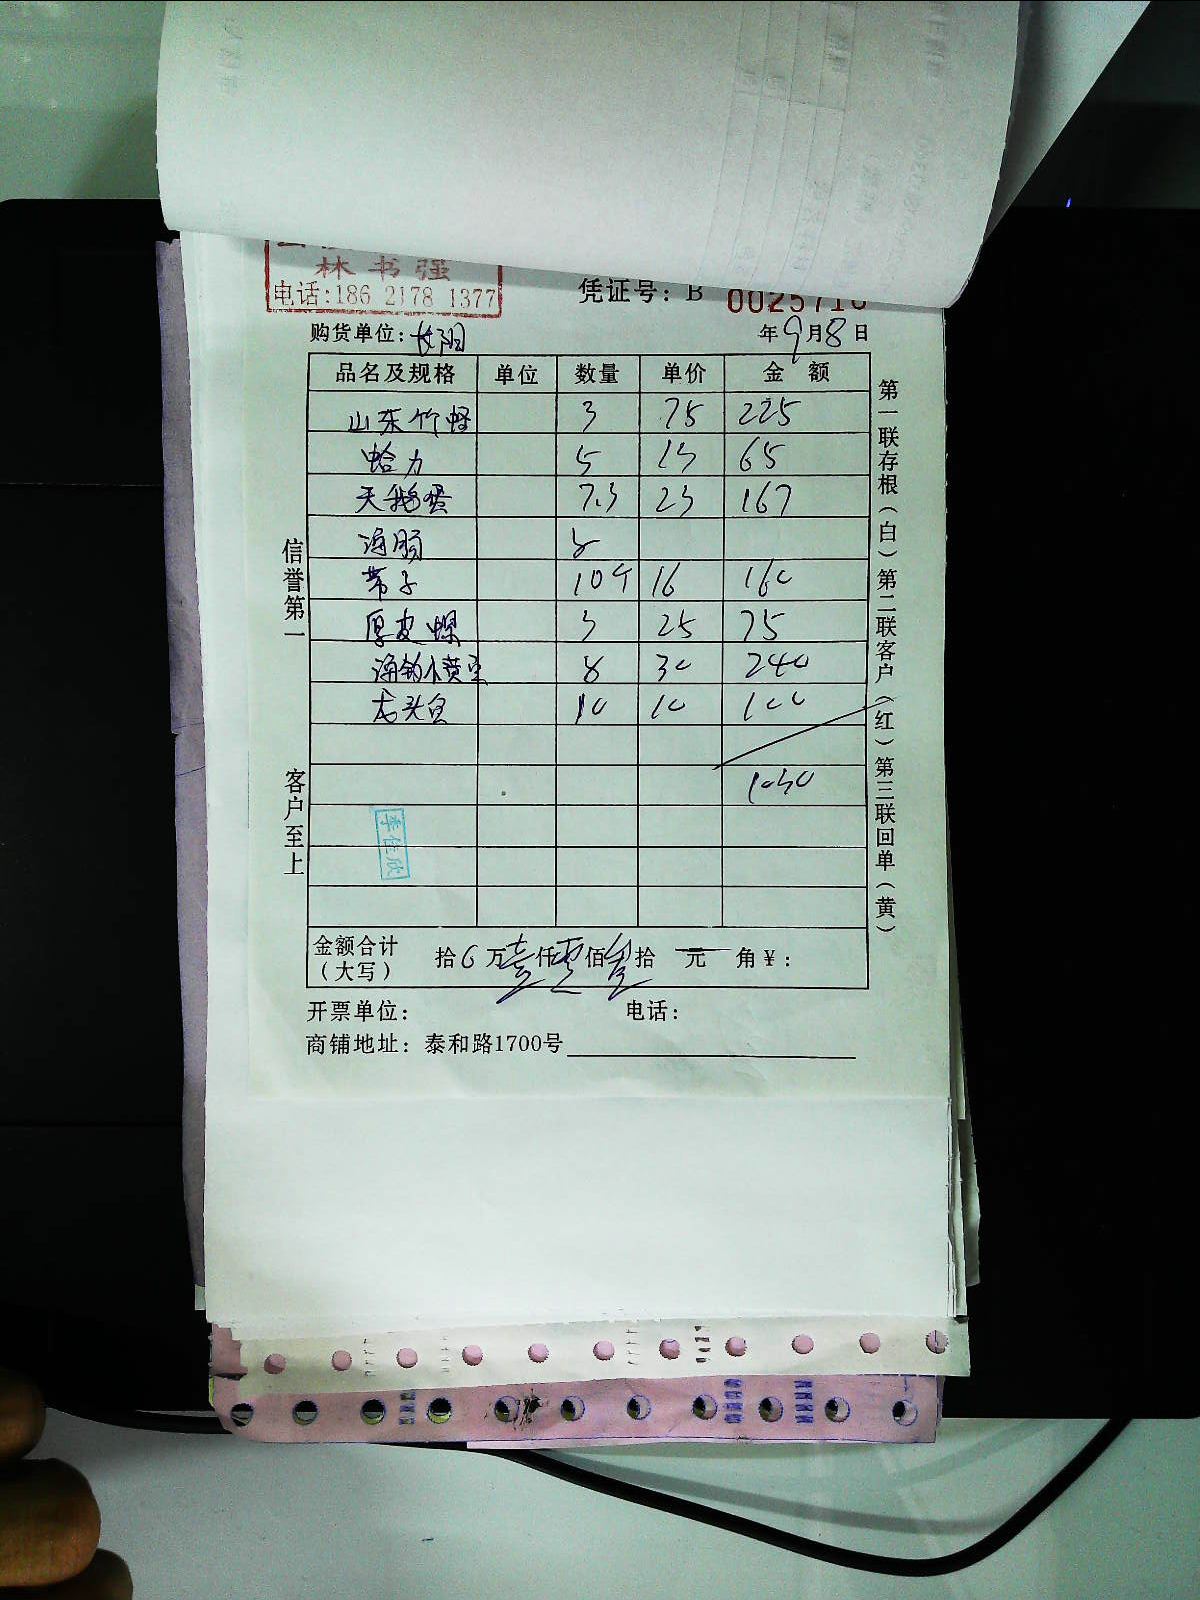 林书强
电话:186 2178 1377
凭证号: B 0025710
购货单位: 长阳 年9月8日
品名及规格 单位 数量 单价 金额
山东竹蛏 3 75 225
蛤力 5 13 65
天鹅蛋 7.3 23 167
海肠
带子 10个 16 160
厚皮螺 3 25 75
海钓小黄鱼 8 30 240
龙头鱼 10 10 100
1030
李佳欣
金额合计 (大写) 拾 万壹仟零佰叁拾 元 角¥:
开票单位: 电话:
商铺地址: 泰和路1700号
信誉第一
客户至上
第一联存根(白)第二联客户(红)第三联回单(黄)